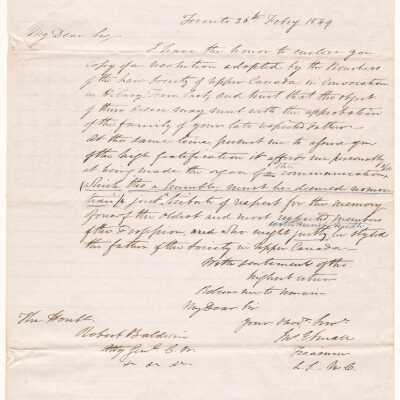 Toronto 26th Feby 1849
My Dear Sir,
I have the honor to enclose you
Copy of a resolution adopted by the Benchers
of the Law Society of Upper Canada in Convocation
in Hilary Term last, and trust that the object
of their desire may meet with the approbation
of the family of your late respected Father
At the same time permit me to assure you
of the high gratification it affords me personally
at being made the organ of the communication
a just tribute of respect for the memory
of one of the oldest and most respected members
of the profession, and who might justly be styled
the father of the Society in Upper Canada—
With sentiments of the
highest esteem
Believe me to remain
My Dear Sir
The Honble
Your Obedt Servt
Robert Baldwin
Atty Genl C. W.
Treasurer
L. S. U. C.